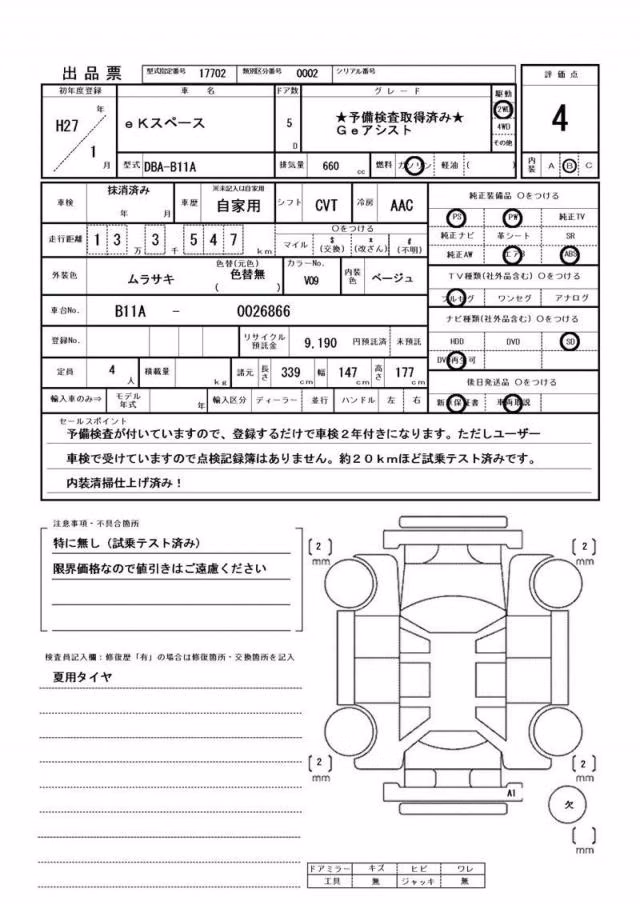 出品票 型式指定番号 17702 類別区分番号 0002 シリアル番号
評価点
4
内装 A B C
初年度登録 車名 ドア数 グレード 駆動
H27年 1月
eKスペース
5D
★予備検査取得済み★
Geアシスト
2WD
4WD
その他
型式 DBA-B11A 排気量 660 cc 燃料 ガソリン 軽油 ( )
車検 抹消済み 年 月 車歴 ※未記入は自家用 自家用 シフト CVT 冷房 AAC
走行距離 13万3千547km
〇をつける
マイル $(交換) *(改ざん) #(不明)
外装色 ムラサキ 色替(元色) 色替無 ( ) カラーNo. V09 内装色 ベージュ
車台No. B11A - 0026866
登録No. リサイクル預託金 9,190 円預託済 未預託
定員 4人 積載量 kg 諸元 長さ 339cm 幅 147cm 高さ 177cm
輸入車のみ⇒ モデル年式 年 輸入区分 ディーラー 並行 ハンドル 左 右
純正装備品 〇をつける
PS PW 純正TV
純正ナビ 革シート SR
純正AW エアB ABS
TV種類(社外品含む) 〇をつける
フルセグ ワンセグ アナログ
ナビ種類(社外品含む) 〇をつける
HDD DVD SD
DVD再生可
後日発送品 〇をつける
新車保証書 車両取説
セールスポイント
予備検査が付いていますので、登録するだけで車検２年付きになります。ただしユーザー
車検で受けていますので点検記録簿はありません。約２０ｋｍほど試乗テスト済みです。
内装清掃仕上げ済み！
注意事項・不具合箇所
特に無し（試乗テスト済み）
限界価格なので値引きはご遠慮ください
検査員記入欄：修復歴「有」の場合は修復箇所・交換箇所を記入
夏用タイヤ
[2] mm
[2] mm
[2] mm
[2] mm
A1
欠
[ ] mm
ドアミラー キズ ヒビ ワレ
工具 無 ジャッキ 無